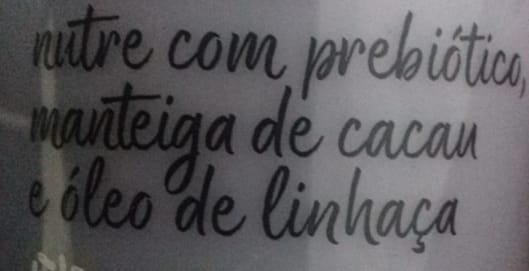 nutre com prebiótico,
manteiga de cacau
e óleo de linhaça